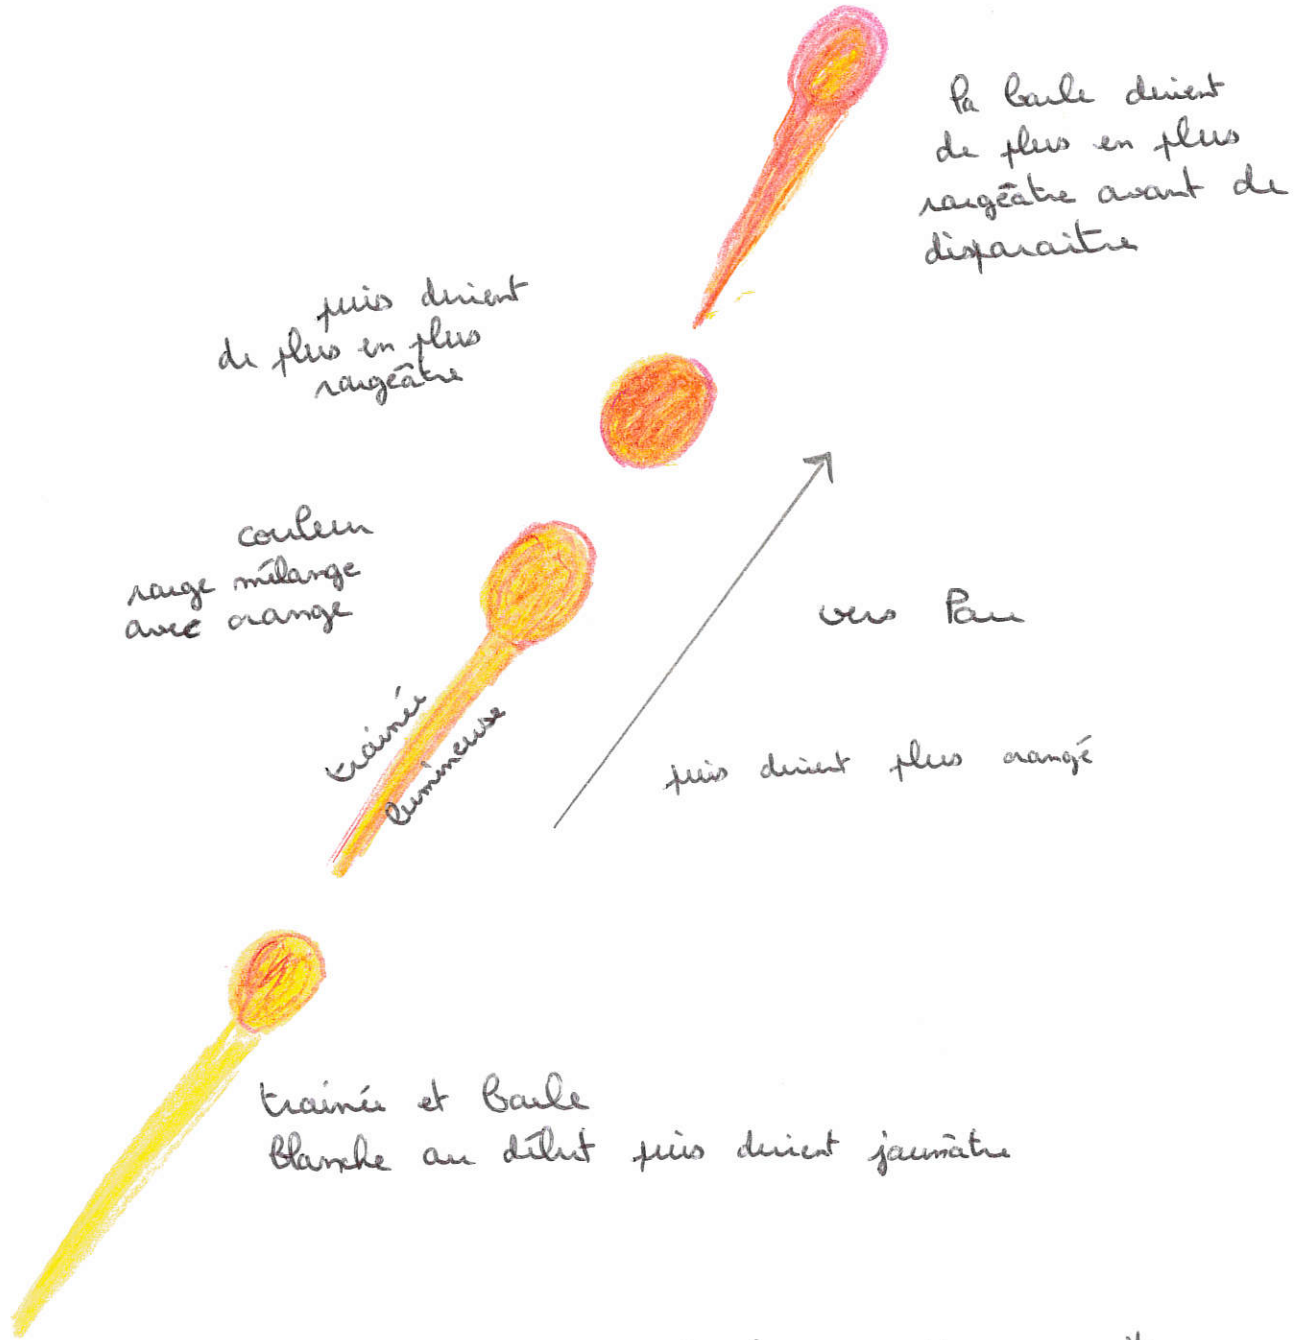 la boule devient
de plus en plus
rougeâtre avant de
disparaitre
puis devient
de plus en plus
rougeâtre
couleur
rouge mélange
avec orange
vers Pau
trainée
lumineuse
puis devient plus orangé
trainée et boule
Blanche au début puis devient jaunâtre